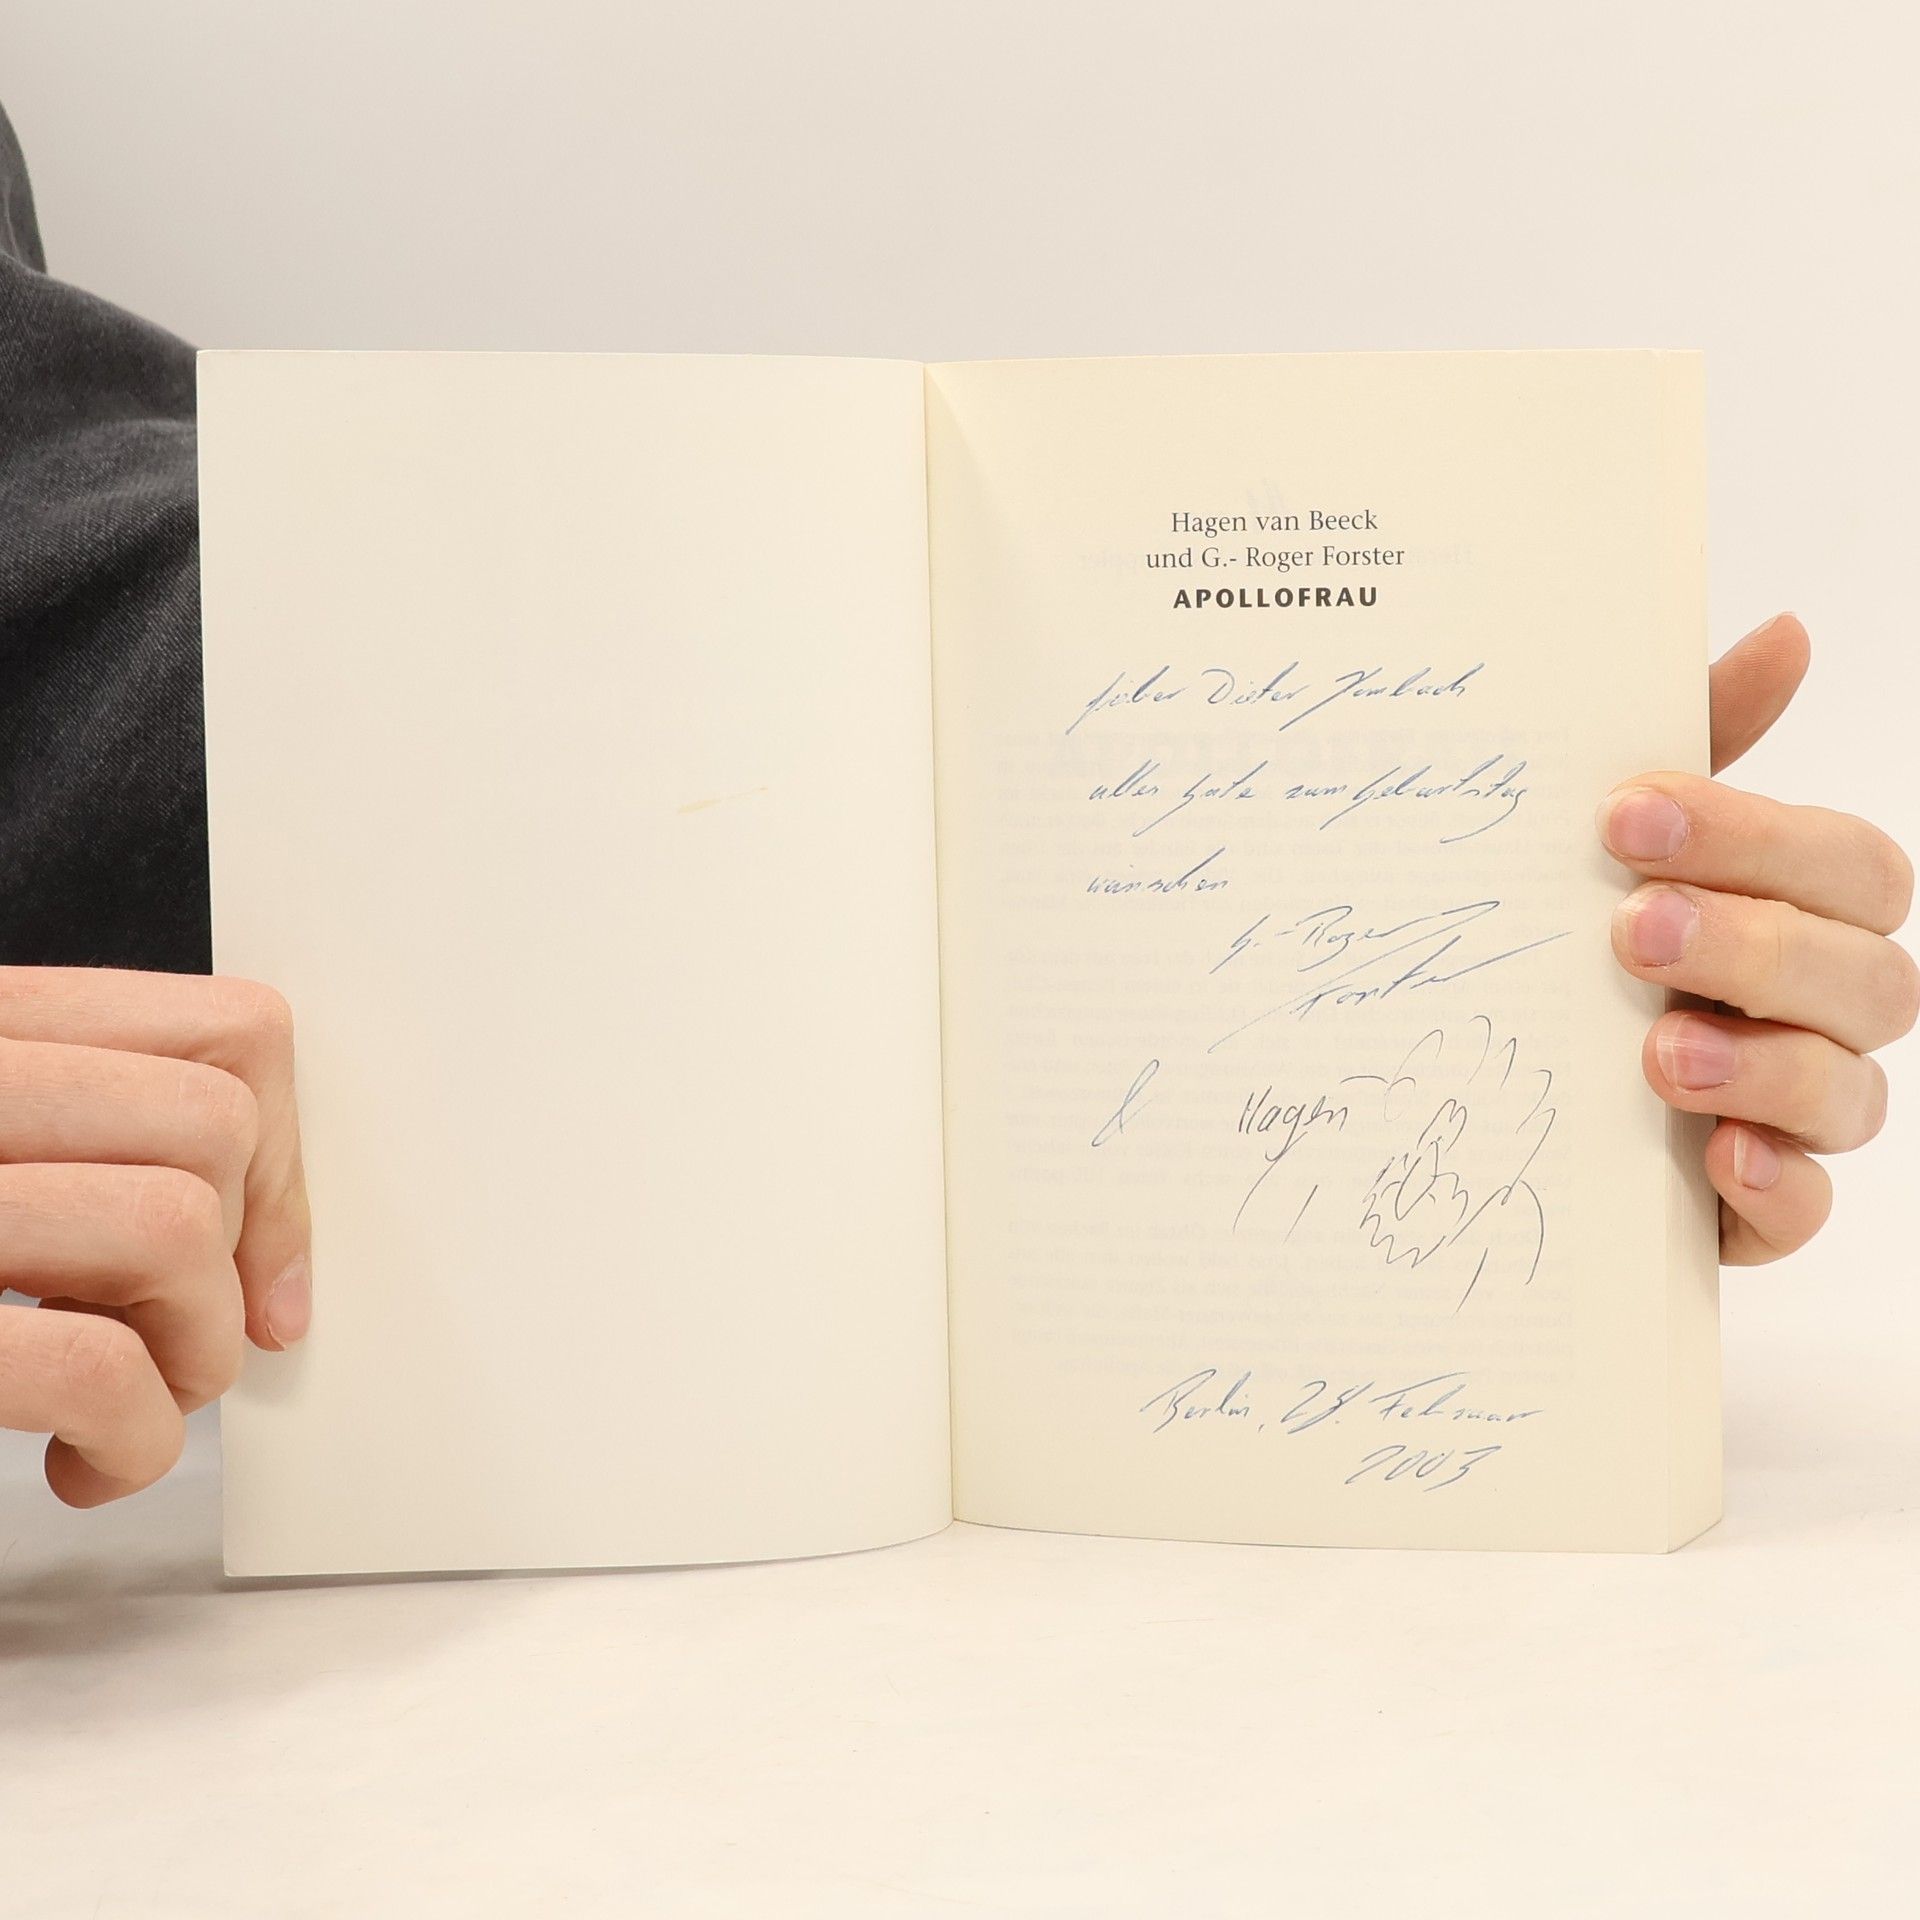 Hagen van Beeck
und G.- Roger Forster
APOLLOFRAU
Lieber Dieter Hombach
alles Gute zum Geburtstag
wünschen
G.-Roger
Forster
& Hagen
Berlin, 28. Februar
2003